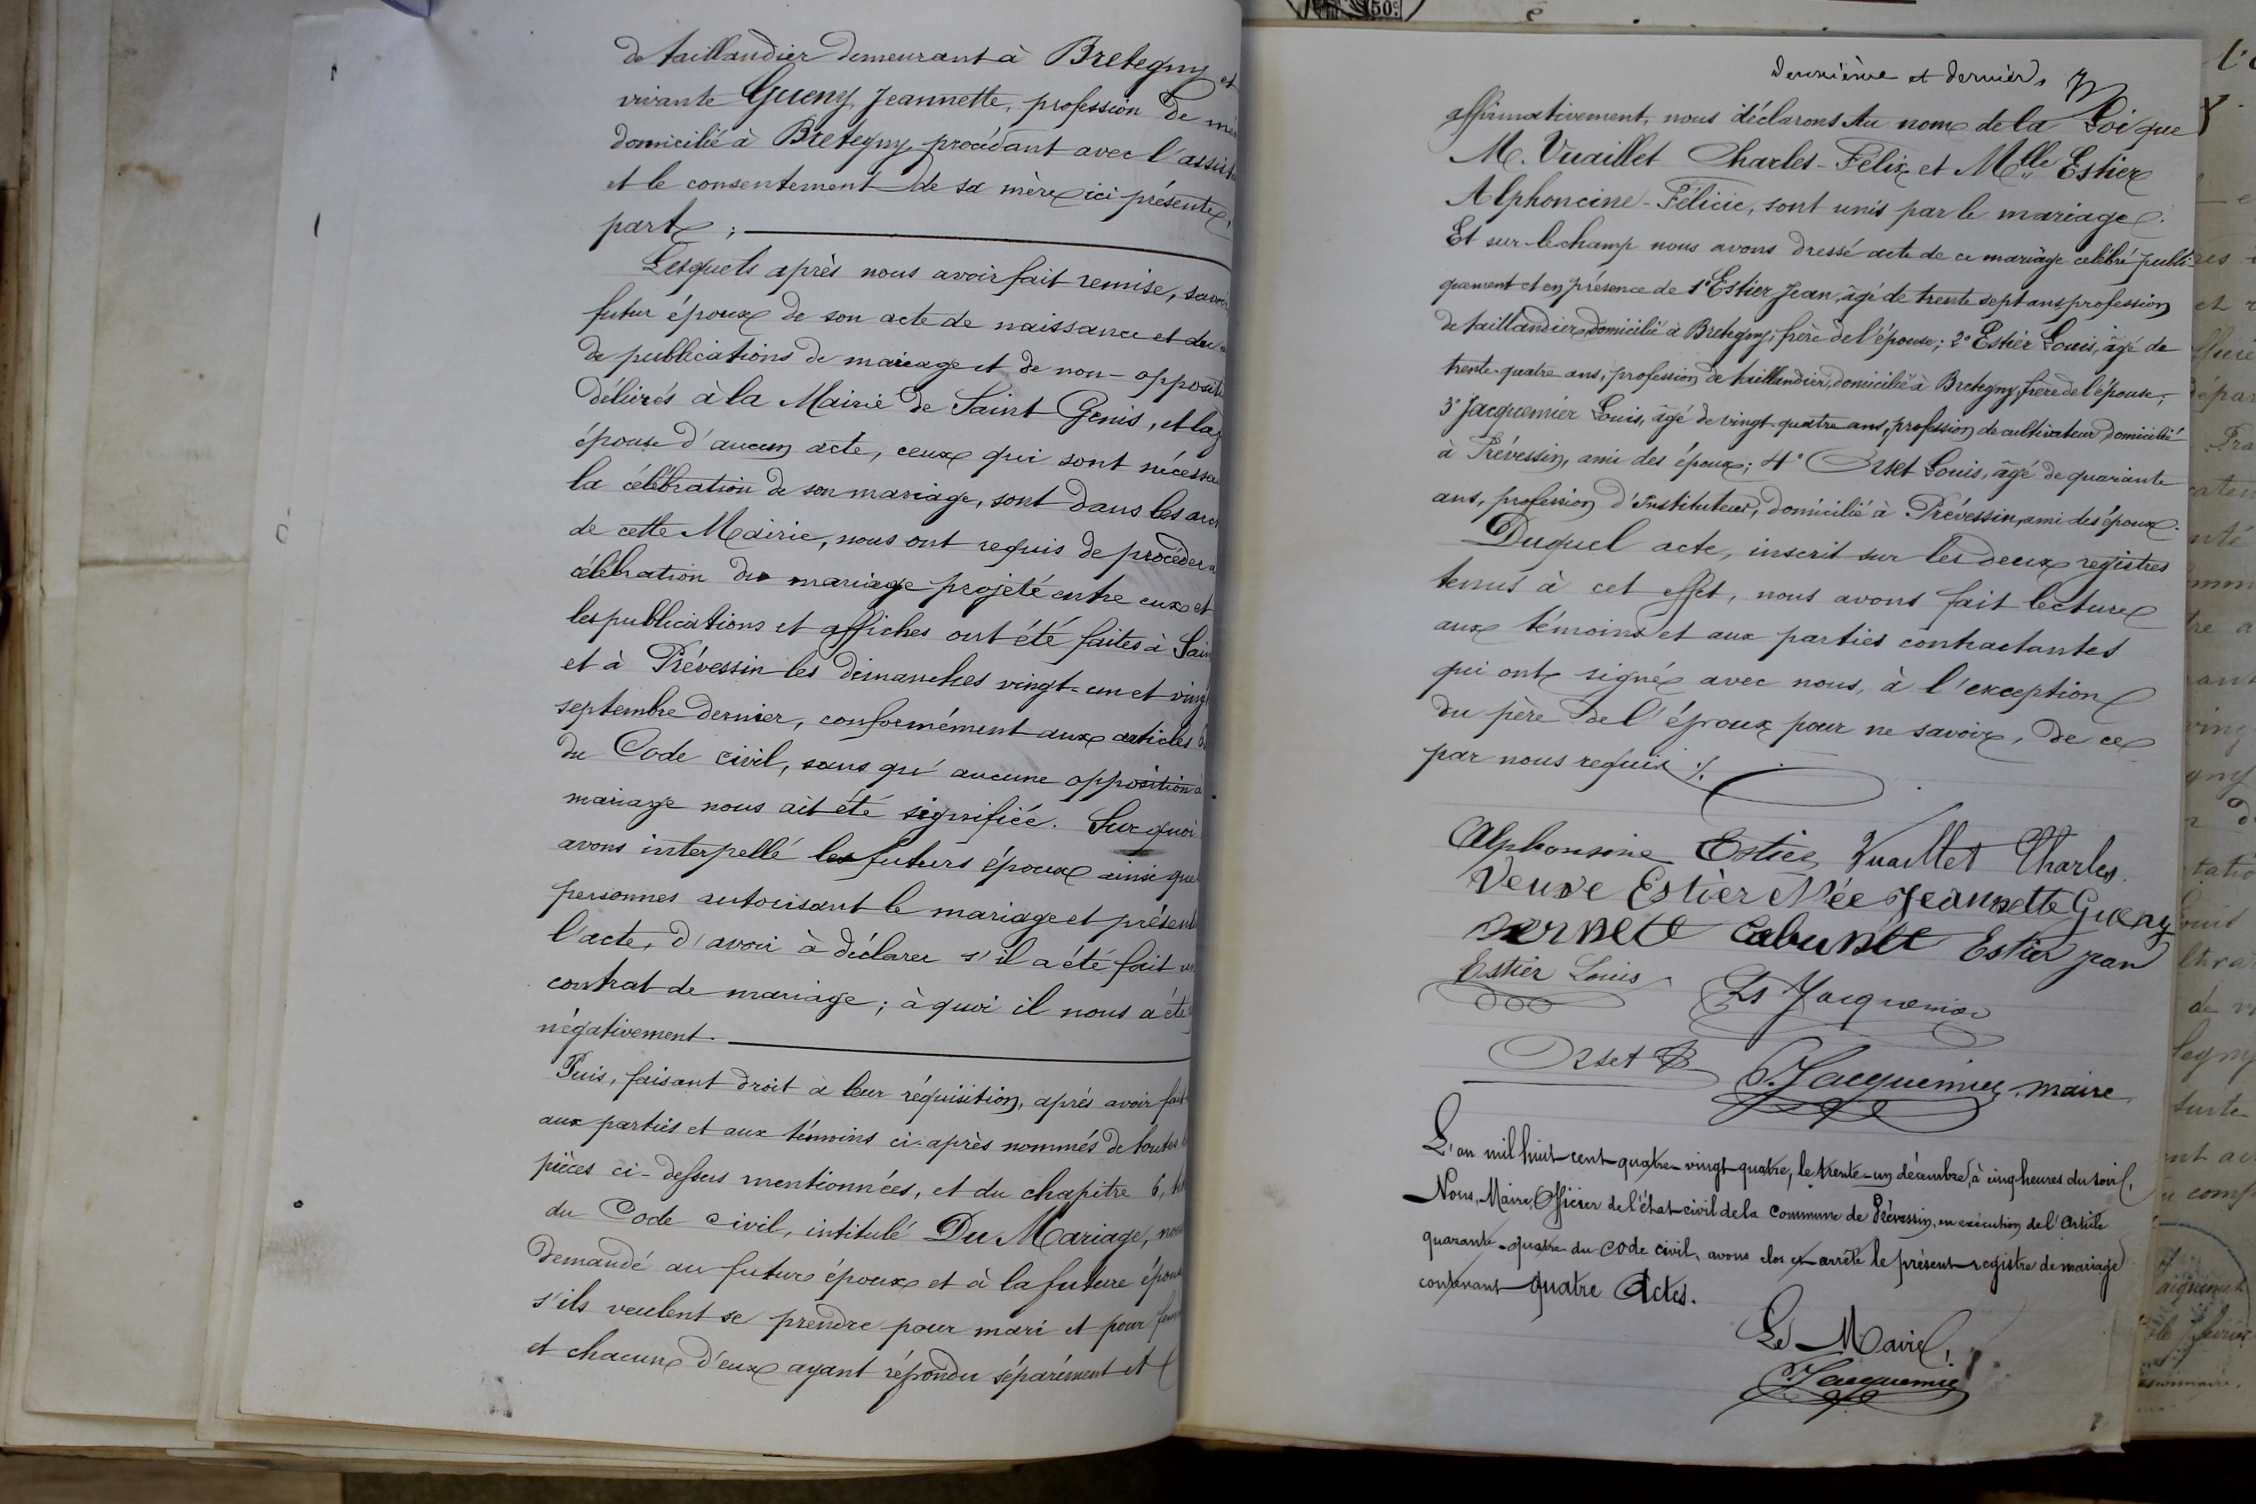 de taillandier demeurant à Bretegny et
vivante Gueny, Jeannette, profession de
domicilié à Bretegny procédant avec l'assist
et le consentement de sa mère ici présente,
part ;
Lesquels après nous avoir fait remise, savoir
futur époux de son acte de naissance et du
de publications de mariage et de non-oppositi
délivrés à la Mairie de Saint Genis, et la
épouse d'aucun acte, ceux qui sont nécessa
la célébration de son mariage, sont dans les arc
de cette Mairie, nous ont requis de procéder à
célébration du mariage projeté entre eux et
les publications et affiches ont été faites à Sain
et à Prévessin les dimanches vingt-un et ving
septembre dernier, conformément aux articles
du Code civil, sans qu'aucune opposition à
mariage nous ait été signifiée. Sur quoi
avons interpellé les futurs époux ainsi que
personnes autorisant le mariage et présent
l'acte, d'avoir à déclarer s'il a été fait un
contrat de mariage ; à quoi il nous a été
négativement.
Puis, faisant droit à leur réquisition, après avoir fait
aux parties et aux témoins ci-après nommés de toutes
pièces ci-dessus mentionnées, et du chapitre 6,
du Code civil, intitulé Du Mariage, nous
demandé au futur époux et à la future épous
s'ils veulent se prendre pour mari et pour fem
et chacun d'eux ayant répondu séparément et
50c.
Deuxième et dernier.
affirmativement, nous déclarons Au nom de la Loi que
M. Vuaillet Charles-Félix et Mlle Estier
Alphoncine-Félicie, sont unis par le mariage.
Et sur-le-champ nous avons dressé acte de ce mariage célébré publi-
quement et en présence de 1° Estier Jean, âgé de trente sept ans profession
de taillandier, domicilié à Bretegny, frère de l'épouse ; 2° Estier Louis, âgé de
trente-quatre ans, profession de taillandier, domicilié à Bretegny, frère de l'épouse ;
3° Jacquemier Louis, âgé de vingt-quatre ans, profession de cultivateur domicilié
à Prévessin, ami des époux ; 4° Orset Louis, âgé de quarante
ans, profession d'Instituteur, domicilié à Prévessin, ami des époux.
Duquel acte, inscrit sur les deux registres
tenus à cet effet, nous avons fait lecture
aux témoins et aux parties contractantes
qui ont signé avec nous, à l'exception
du père de l'époux pour ne savoir, de ce
par nous requis ./.
Alphonsine Estier Vuaillet Charles.
Veuve Estièr Née Jeannette Gueny
Estier Jean
Estier Louis Ls Jacquemier
Orset
Jacquemier, maire,
L'an mil huit cent quatre-vingt-quatre, le trente-un décembre, à cinq heures du soir,
Nous, Maire, Officier de l'état-civil de la Commune de Prévessin, en exécution de l'Article
quarante-quatre du code civil, avons clos et arrêté le présent registre de mariage
contenant quatre Actes.
Le Maire,
Jacquemier